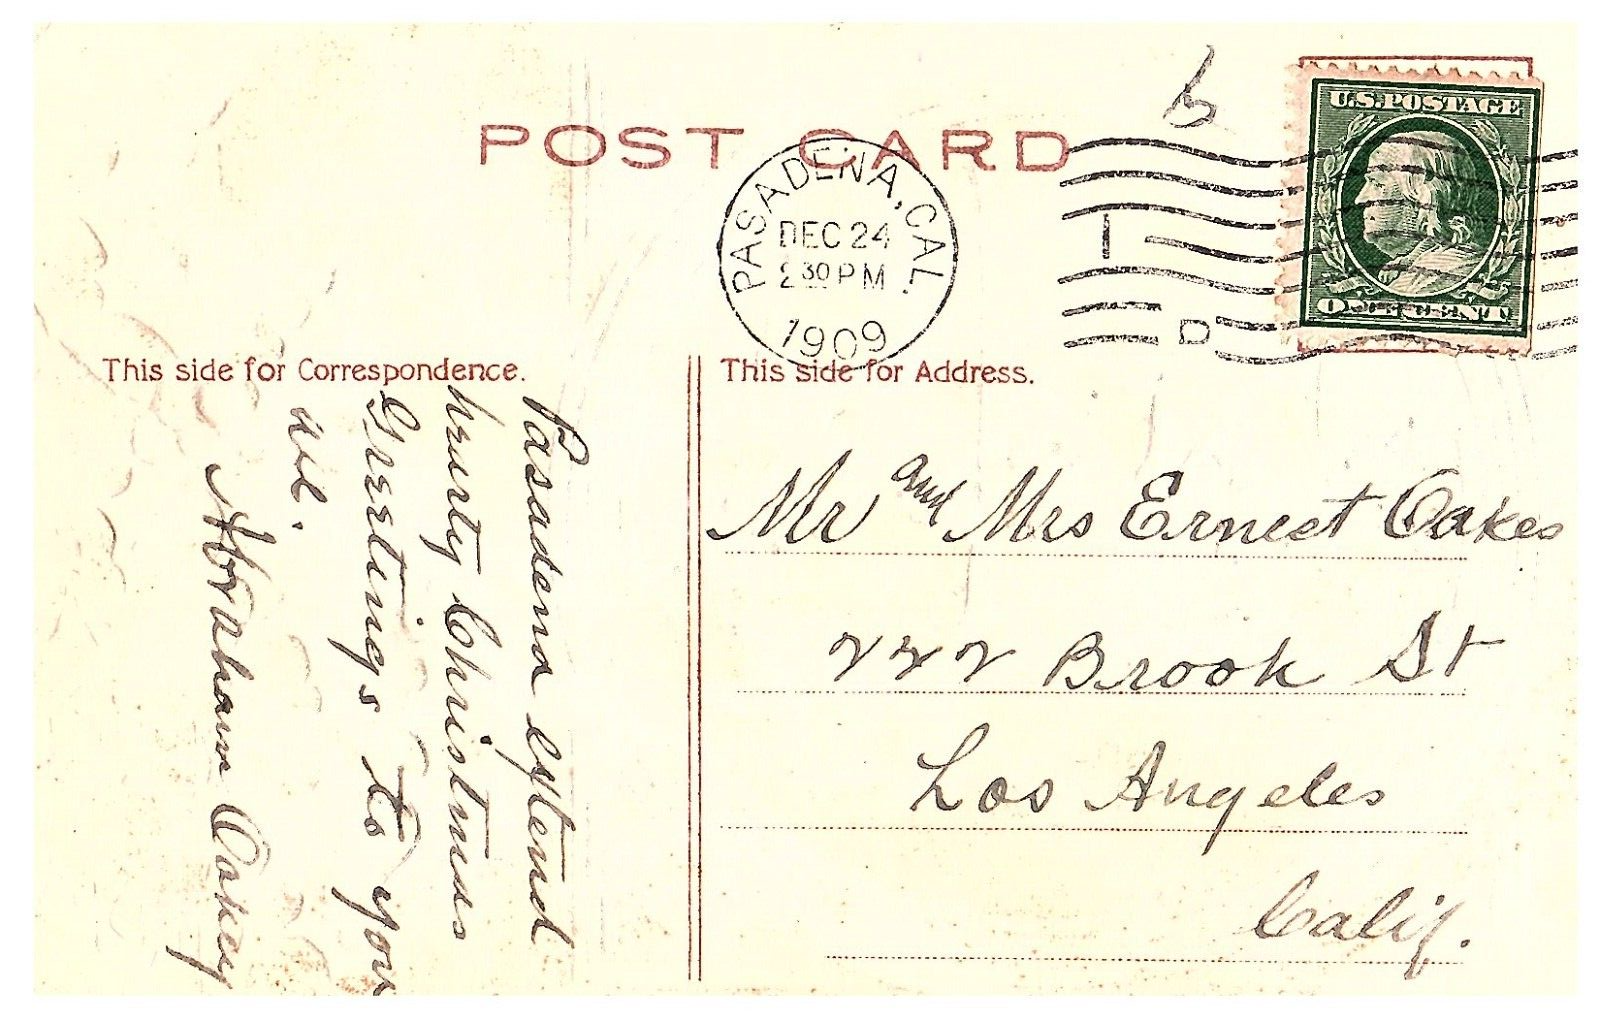 POST CARD
PASADENA, CAL.
DEC 24
2 30 PM
1909
U.S. POSTAGE
ONE CENT
D
This side for Correspondence.
Pasadena extend
hearty Christmas
Greetings to you
all.
Abraham Oakey
This side for Address.
Mr and Mrs Ernest Oakes
222 Brook St
Los Angeles
Calif.